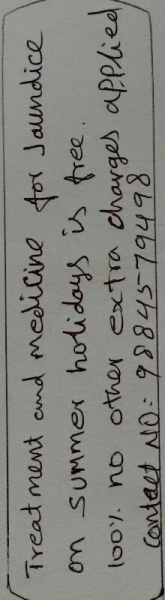 Treatment and medicine for Jaundice
on summer holidays is free.
100% no other extra charges applied
Contact NO: 98845-79498